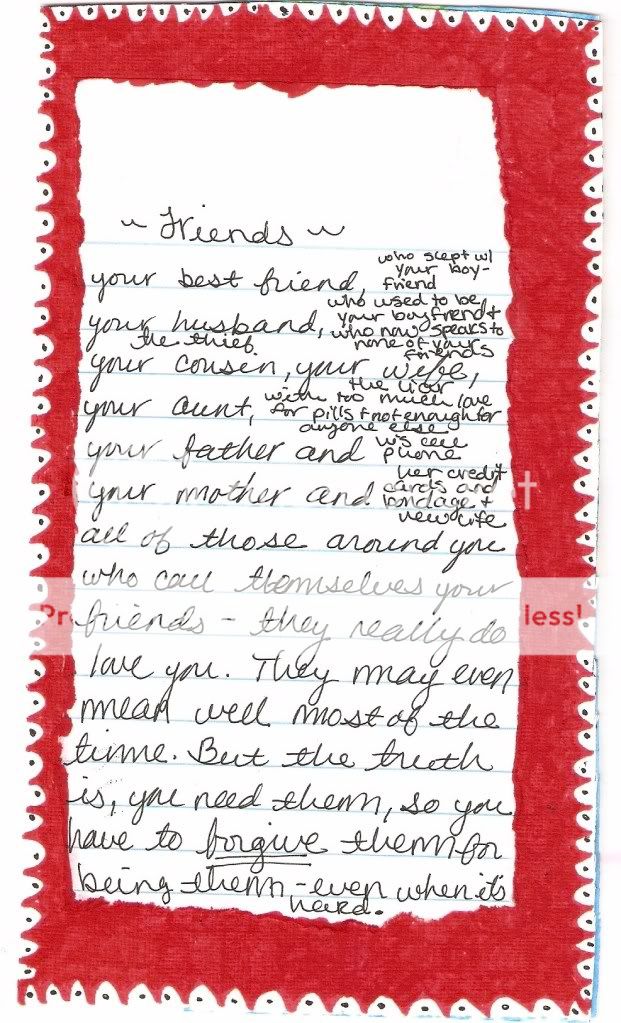 ~ Friends ~
who slept w/
your boy-
your best friend, friend
who used to be
your boyfriend +
your husband, who now speaks to
the thief none of your
friends
your cousin, your wife,
the liar
with too much love
your aunt, for pills + not enough for
anyone else
your father and his cell
phone
her credit
your mother and cards and
bondage +
new life
all of those around you
who call themselves your
friends - they really do
love you. They may even
mean well most of the
time. But the truth
is, you need them, so you
have to forgive them for
being them - even when it's
hard.
less!